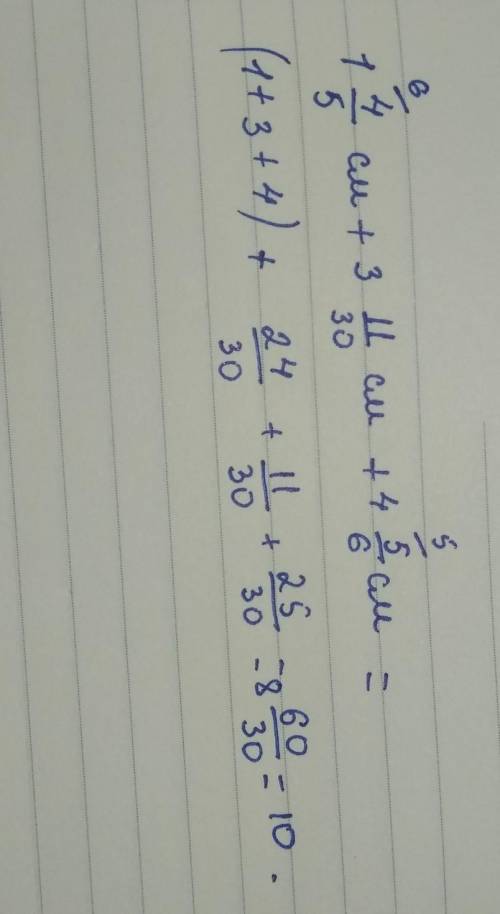 1 4/5 см + 3 11/30 см + 4 5/6 см =
(1 + 3 + 4) + 24/30 + 11/30 + 25/30 = 8 60/30 = 10.